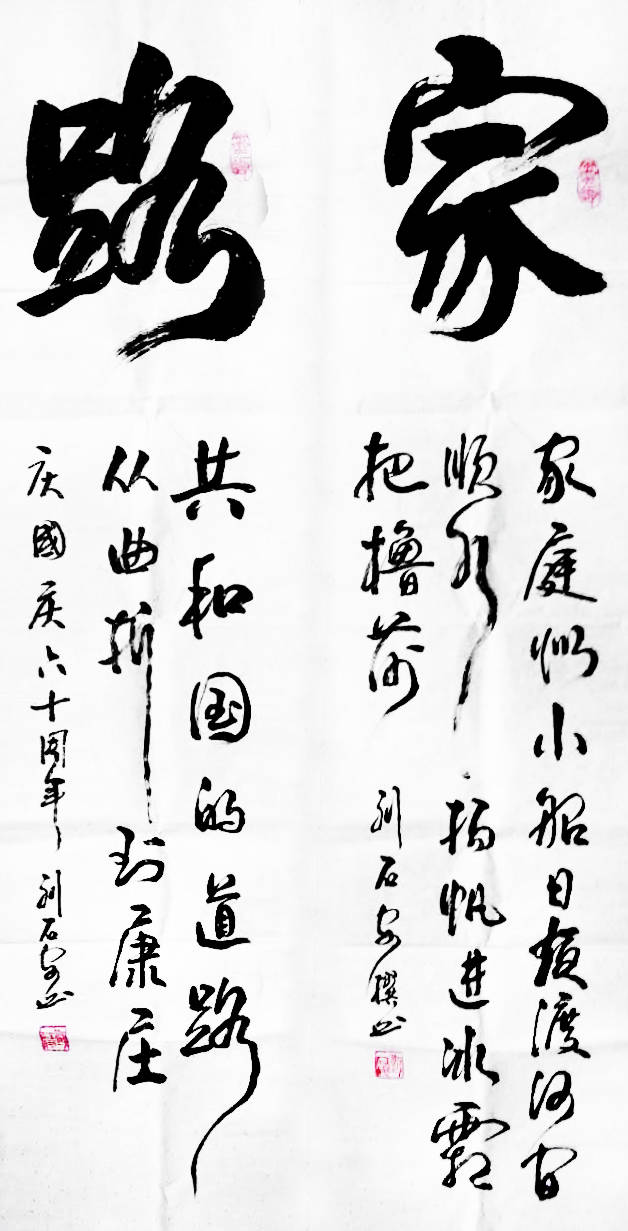 家
家庭似小船日渡河
顺水扬帆进冰霜
把橹
刘石安撰书
路
共和国的道路
从曲折到康庄
庆國庆六十周年 刘石安书